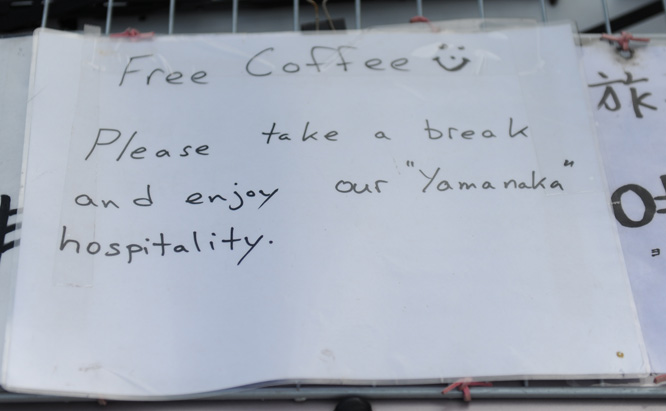 Free Coffee
Please take a break
and enjoy our "Yamanaka"
hospitality.
旅